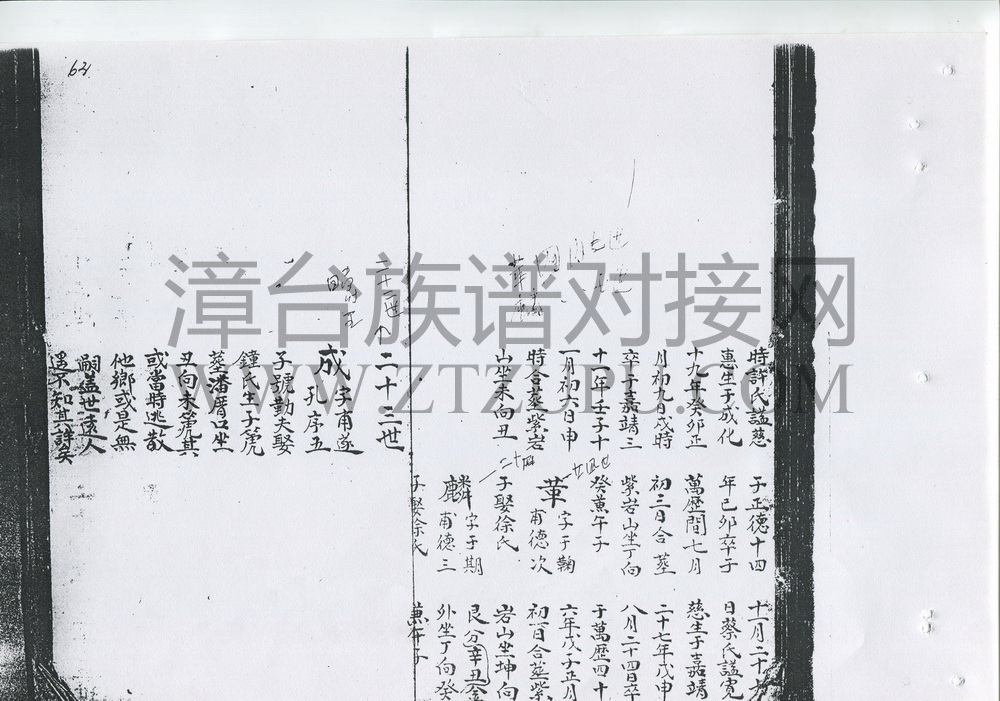 62
漳台族谱对接网
WWW.ZTZUPU.COM
時許氏謚慈
惠生于成化
十九年癸卯正
月初九日戌時
卒于嘉靖三
十一年壬子十
一月初六日申
時合塟紫岩
山坐未向丑
子正德十四
年己卯卒于
萬歷間七月
初三日合塟
紫岩山坐丁向
癸兼午子
華字于鞠
甫德次
子娶徐氏
麟字于期
甫德三
子娶徐氏
十一月二十
日蔡氏謚寛
慈生于嘉靖
二十七年戊申
八月二十四日卒
于萬歷四十
六年戊子正月
初一日合塟紫
岩山坐坤向
艮分辛丑金
外坐丁向癸
兼午子
二十三世
成字甫遂
孔序五
子號勤夫娶
鐘氏生子箎
塟潘厝口坐
丑向未箎其
或當時逃散
他鄉或是無
嗣盖世遠人
遐不知其詳矣